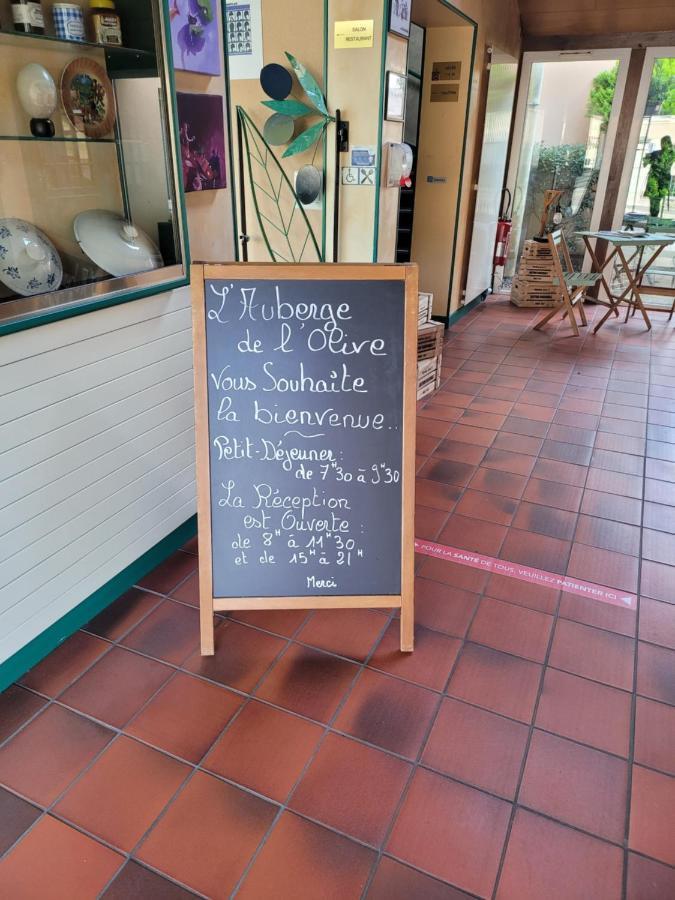 SALON
RESTAURANT
L'Auberge
de l'Olive
Vous Souhaîte
la bienvenue...
Petit-Déjeuner:
de 7H30 à 9H30
La Réception
est Ouverte :
de 8H à 11H30
et de 15H à 21H
Merci
POUR LA SANTÉ DE TOUS, VEUILLEZ PATIENTER ICI